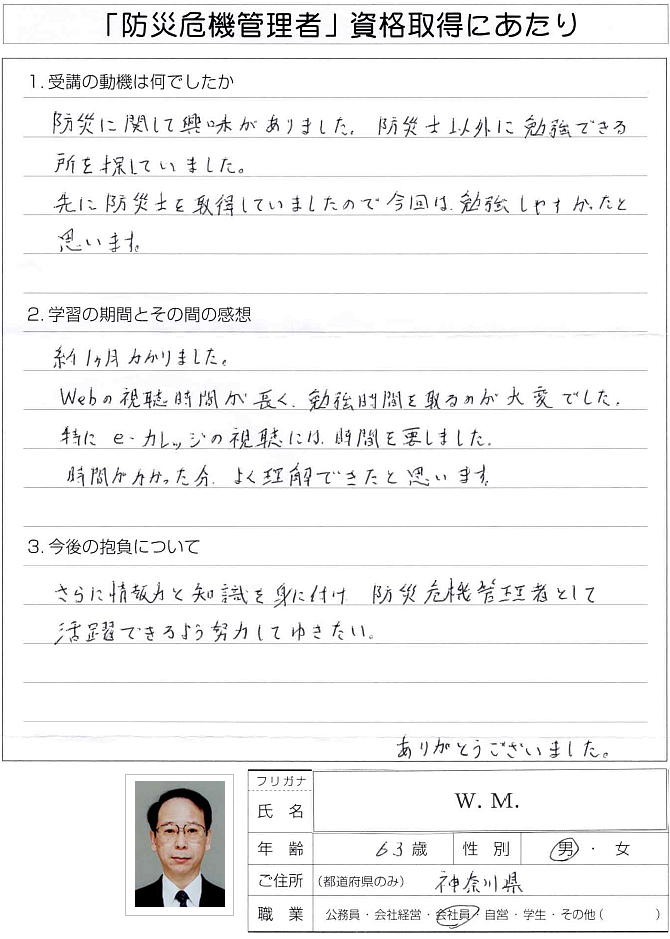 「防災危機管理者」資格取得にあたり
1. 受講の動機は何でしたか
防災に関して興味がありました。 防災士以外に勉強できる
所を探していました。
先に防災士を取得していましたので今回は、勉強しやすかったと
思います。
2. 学習の期間とその間の感想
約1ヶ月かかりました。
Webの視聴時間が長く、勉強時間を取るのが大変でした。
特にe-カレッジの視聴には、時間を要しました。
時間がかかった分、よく理解できたと思います。
3. 今後の抱負について
さらに情報力と知識を身に付け 防災危機管理者として
活躍できるよう努力してゆきたい。
ありがとうございました。
フリガナ
氏 名 W. M.
年 齢 63歳 性 別 男 ・ 女
ご住所 (都道府県のみ) 神奈川県
職 業 公務員・会社経営・会社員・自営・学生・その他( )